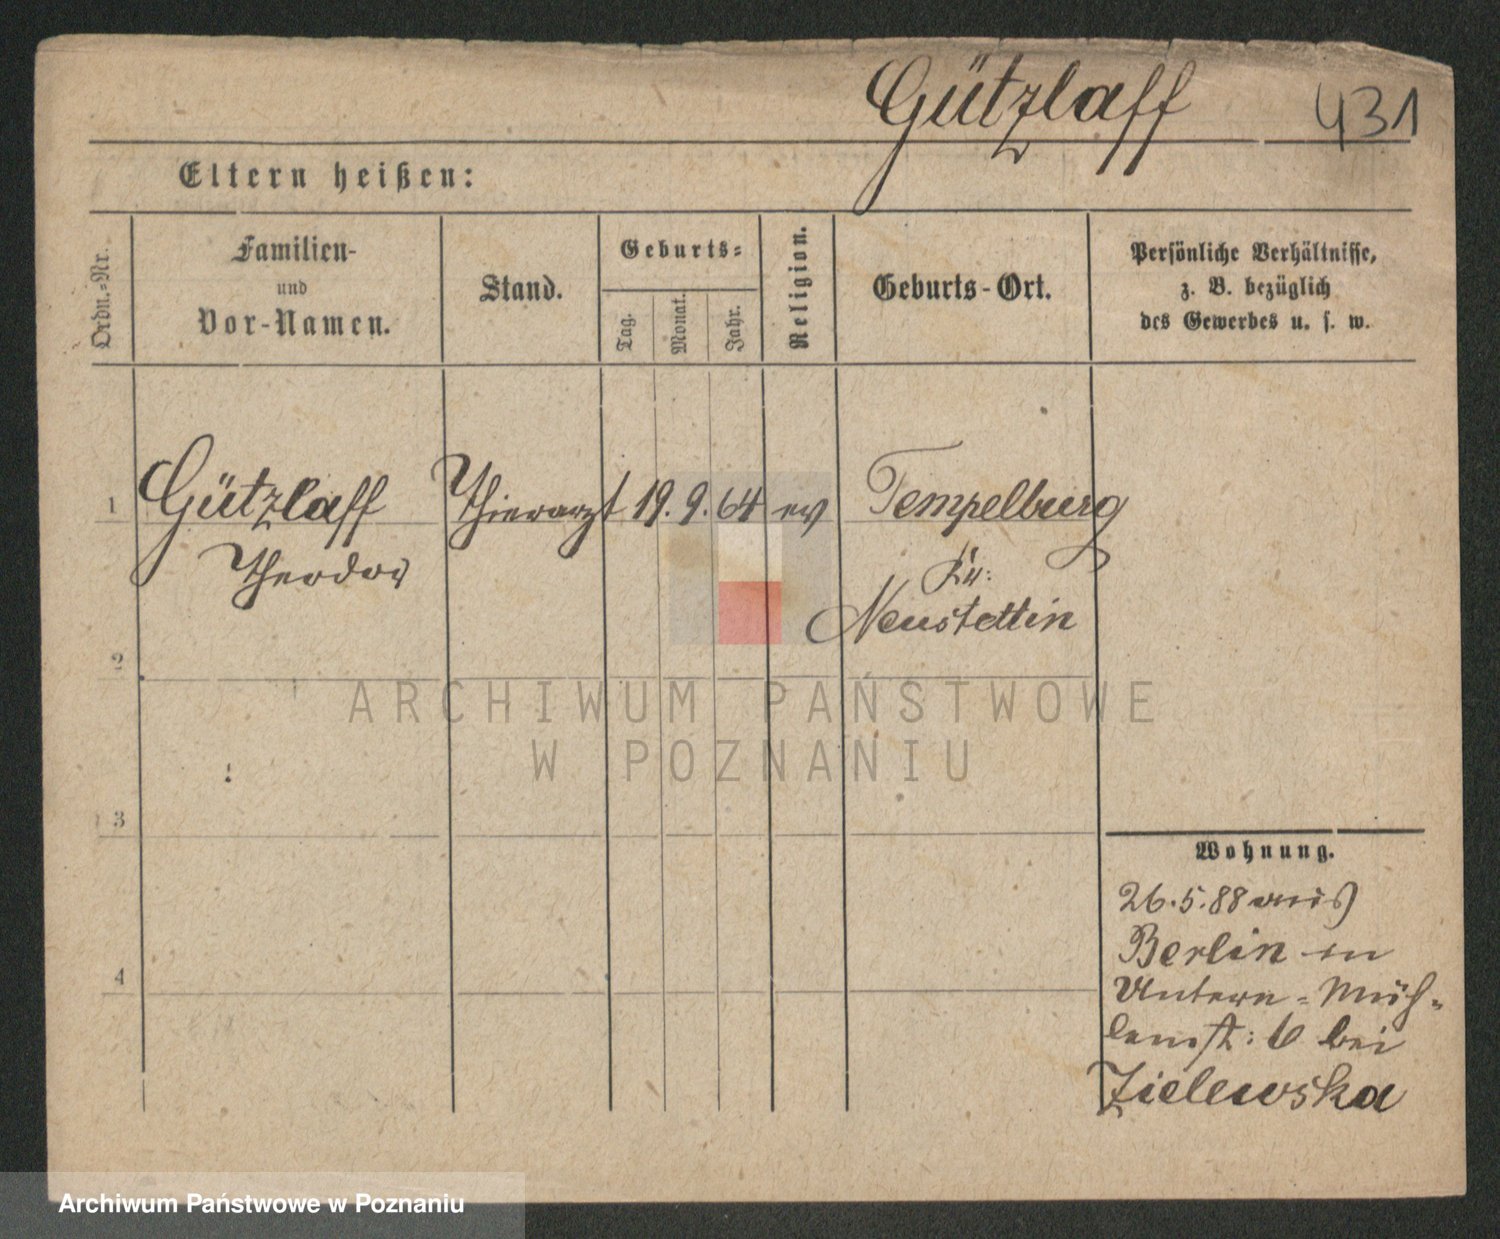 Gützlaff 431
Eltern heißen:
Ordn.-Nr.
Familien-
und
Vor-Namen.
Stand.
Geburts-
Tag.
Monat.
Jahr.
Religion.
Geburts-Ort.
Persönliche Verhältnisse,
z. B. bezüglich
des Gewerbes u. s. w.
1 Gützlaff Thierarzt 19. 9. 64 ev Tempelburg
Theodor
Kr:
Neustettin
2
3
4
Wohnung.
26.5.88 aus
Berlin in
Untern-Müh-
lenst: 6 bei
Zielewska
ARCHIWUM PAŃSTWOWE
W POZNANIU
Archiwum Państwowe w Poznaniu